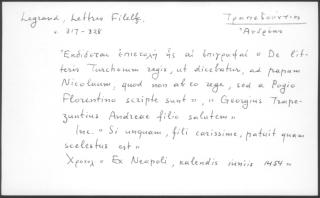 Legrand, Lettres Filelf.
Τραπεζούντιος
" 317-328
Ἀνδρέας
Ἐκδίδεται ἐπιστολὴ ἧς αἱ ἐπιγραφαί « De lit-
teris Turchorum regis, ut dicebatur, ad papam
Nicolaum, quod non ab eo rege, sed a Pogio
Florentino scripte sunt », « Georgius Trape-
zuntius Andreae filio salutem »
Inc. « Si unquam, fili carissime, patuit quam
scelestus est »
Χρονολ « Ex Neapoli, kalendis iuniis 1454 »